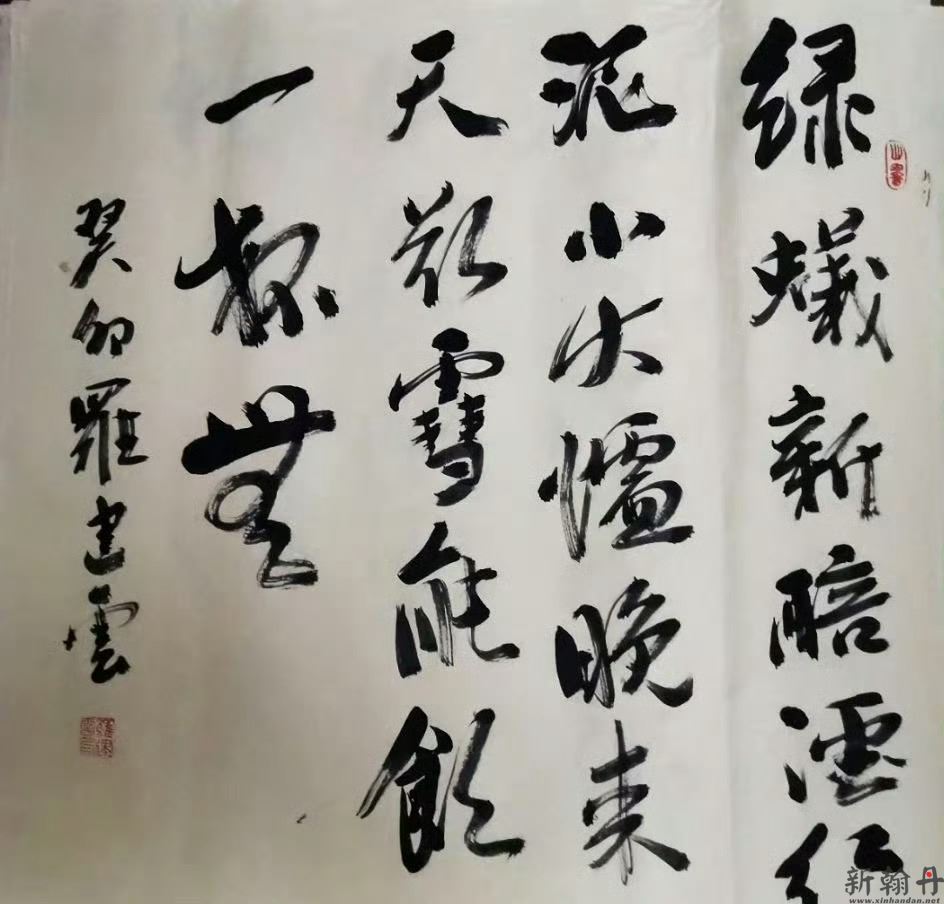 绿蟻新醅酒红
泥小火爐晚来
天欲雪能飲
一杯無
癸卯羅建雲
新翰丹
www.xinhandan.net